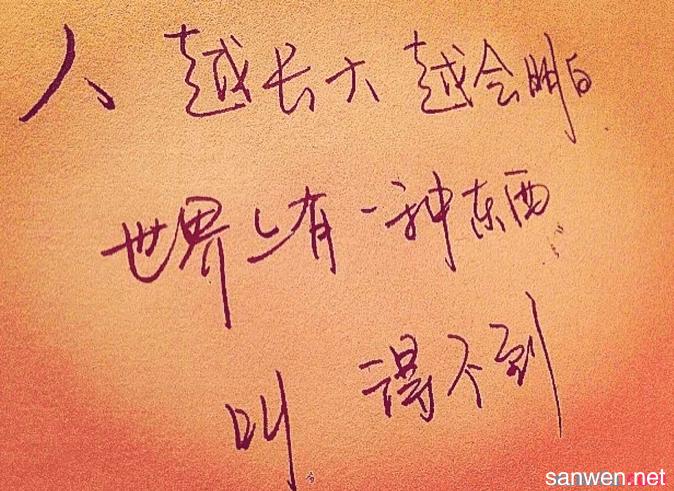 人 越长大 越会明白
世界上有一种东西
叫 得不到
sanwen.net